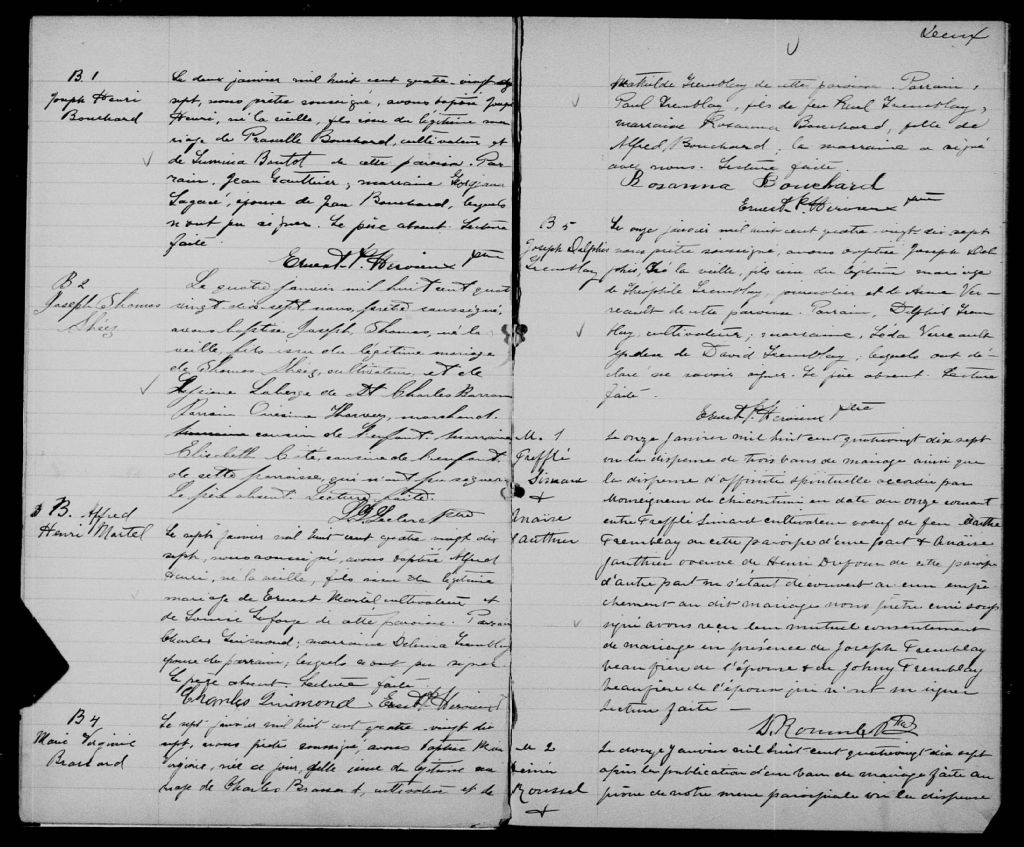 B 1
Joseph Henri
Bouchard
Le deux janvier mil huit cent quatre-vingt dix
sept, nous prêtre soussigné, avons baptisé Joseph
Henri, né la veille, fils issu du légitime ma-
riage de Bouchard, cultivateur et
de Boutot de cette paroisse. Par-
rain, Jean Gauthier; marraine
Lagacé, épouse de Jean Bouchard, lesquels
n'ont pu signer. Le père absent. Lecture
faite.
Ernest P. Hervieux ptre
B 2
Joseph Thomas
Le quatre Janvier mil huit cent quat
vingt dix sept nous, prêtre soussigné,
avons baptisé Joseph Thomas, né la
veille, fils issu du légitime mariage
de Thomas cultivateur, et de
Laberge de St Charles Borromé
Parrain Harvey, marchand.
cousin de l'enfant. marraine
Elisabeth Coté, cousine de l'enfant.
de cette paroisse, qui n'ont pu signer
Le père absent. Lecture faite.
Leclerc ptre
3 B. Alfred
Henri Martel
Le sept janvier mil huit cent quatre vingt dix
sept, nous soussigné, avons baptisé Alfred
Henri, né la veille, fils issu du légitime
mariage de Ernest Martel cultivateur et
de Louise Laforge de cette paroisse. Parrain
Charles Guimond; marraine Delima Tremblay
épouse du parrain; lesquels n'ont pu signer
Le père absent. Lecture faite.
Charles Guimond - Ernest P. Hervieux
B 4
Marie Virginie
Brassard
Le sept janvier mil huit cent quatre vingt dix
sept, nous prêtre soussigné, avons baptisé Marie
Virginie, née ce jour, fille issue du légitime ma
riage de Charles Brassard, cultivateur et de
Deux
Mathilde Tremblay de cette paroisse. Parrain,
Paul Tremblay, fils de feu Paul Tremblay;
marraine Rosanna Bouchard, fille de
Alfred Bouchard; la marraine a signé
avec nous. Lecture faite.
Rosanna Bouchard
Ernest P. Hervieux ptre
B 5
Joseph Delphis
Tremblay
Le onze janvier mil huit cent quatre-vingt dix sept
nous prêtre soussigné, avons baptisé Joseph Del
phis, né la veille, fils issu du légitime mariage
de Théophile Tremblay, journalier et de Anna Ver-
reault de cette paroisse. Parrain, Delphis Trem
blay, cultivateur; marraine, Léda Verreault
épouse de David Tremblay; lesquels ont dé-
claré ne savoir signer. Le père absent. Lecture
faite.
Ernest P. Hervieux ptre
M. 1
Trefflé
Simard
+
Anaïse
Gauthier
Le onze Janvier mil huit cent quatrevingt dix sept
vu la dispense de trois bans de mariage ainsi que
la dispense d'affinité spirituelle accordée par
Monseigneur de Chicoutimi en date du onze courant
entre Trefflé Simard cultivateur veuf de feu
Tremblay de cette paroisse d'une part & Anaïse
Gauthier veuve de Henri Dufour de cette paroisse
d'autre part ne s'étant découvert aucun empê
chement au dit mariage nous prêtre curé souss
igné avons reçu leur mutuel consentement
de mariage en présence de Joseph Tremblay
beau frère de l'épouse & de Johny Tremblay
beau frère de l'époux qui n'ont su signer
Lecture faite —
ptre
M 2
Roussel
+
Le douze Janvier mil huit cent quatrevingt dix sept
après la publication d'un ban de mariage faite au
prône de notre messe paroissiale vu la dispense